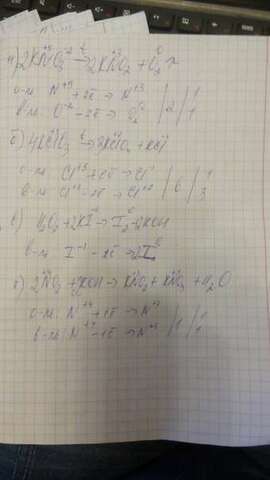 а) 2KN⁺⁵O₃⁻² →ᵗ 2KN⁺³O₂ + O₂⁰ ↑
о-ль N⁺⁵ + 2ē → N⁺³ | 2 | 1
в-ль O⁻² – 2ē → O₂⁰ | | 1
б) 4KClO₃ →ᵗ 3KClO₄ + KCl
о-ль Cl⁺⁵ + 6ē → Cl⁻ | 6 | 1
в-ль Cl⁺⁵ – 2ē → Cl⁺⁷ | | 3
в) H₂O₂ + 2KI → I₂⁰ + 2KOH
в-ль I⁻¹ – ē → I₂⁰
г) 2NO₂ + 2KOH → KNO₂ + KNO₃ + H₂O
о-ль N⁺⁴ + 1ē → N⁺³ | 1 | 1
в-ль N⁺⁴ – 1ē → N⁺⁵ | | 1